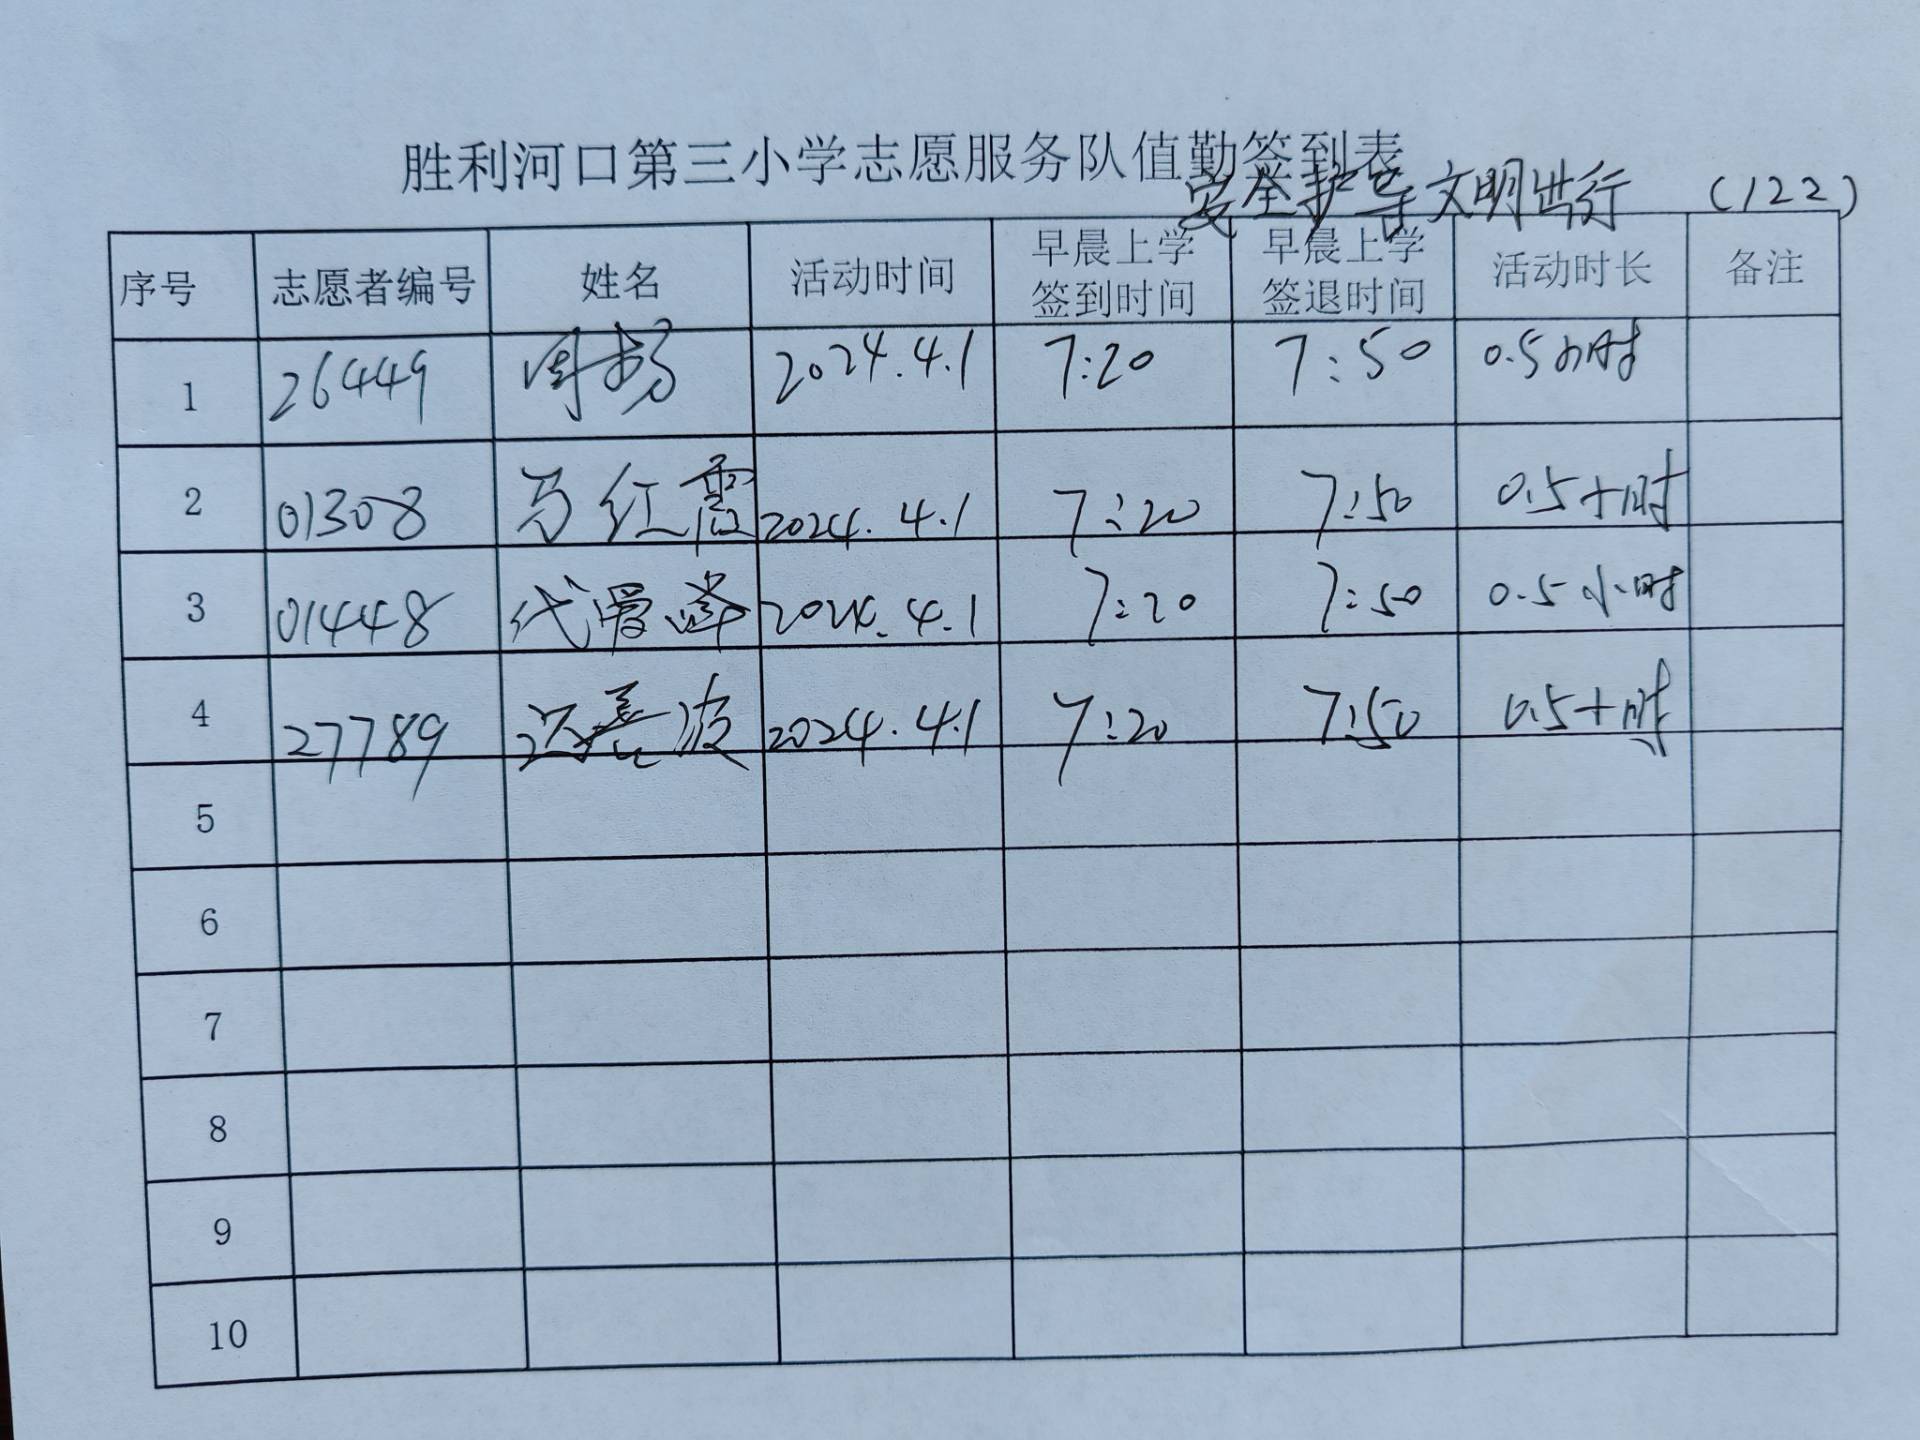 胜利河口第三小学志愿服务队值勤签到表
安全护导文明出行 (122)
序号 志愿者编号 姓名 活动时间 早晨上学签到时间 早晨上学签退时间 活动时长 备注
1 26449 周 2024.4.1 7:20 7:50 0.5小时
2 01308 马红霞 2024.4.1 7:20 7:50 0.5小时
3 01448 代 2024.4.1 7:20 7:50 0.5小时
4 27789 波 2024.4.1 7:20 7:50 0.5小时
5
6
7
8
9
10